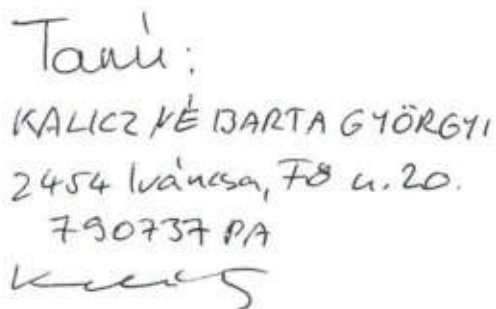 Tanú:
KALICZ NÉ BARTA GYÖRGYI
2454 Iváncsa, Fő u. 20.
790737 PA